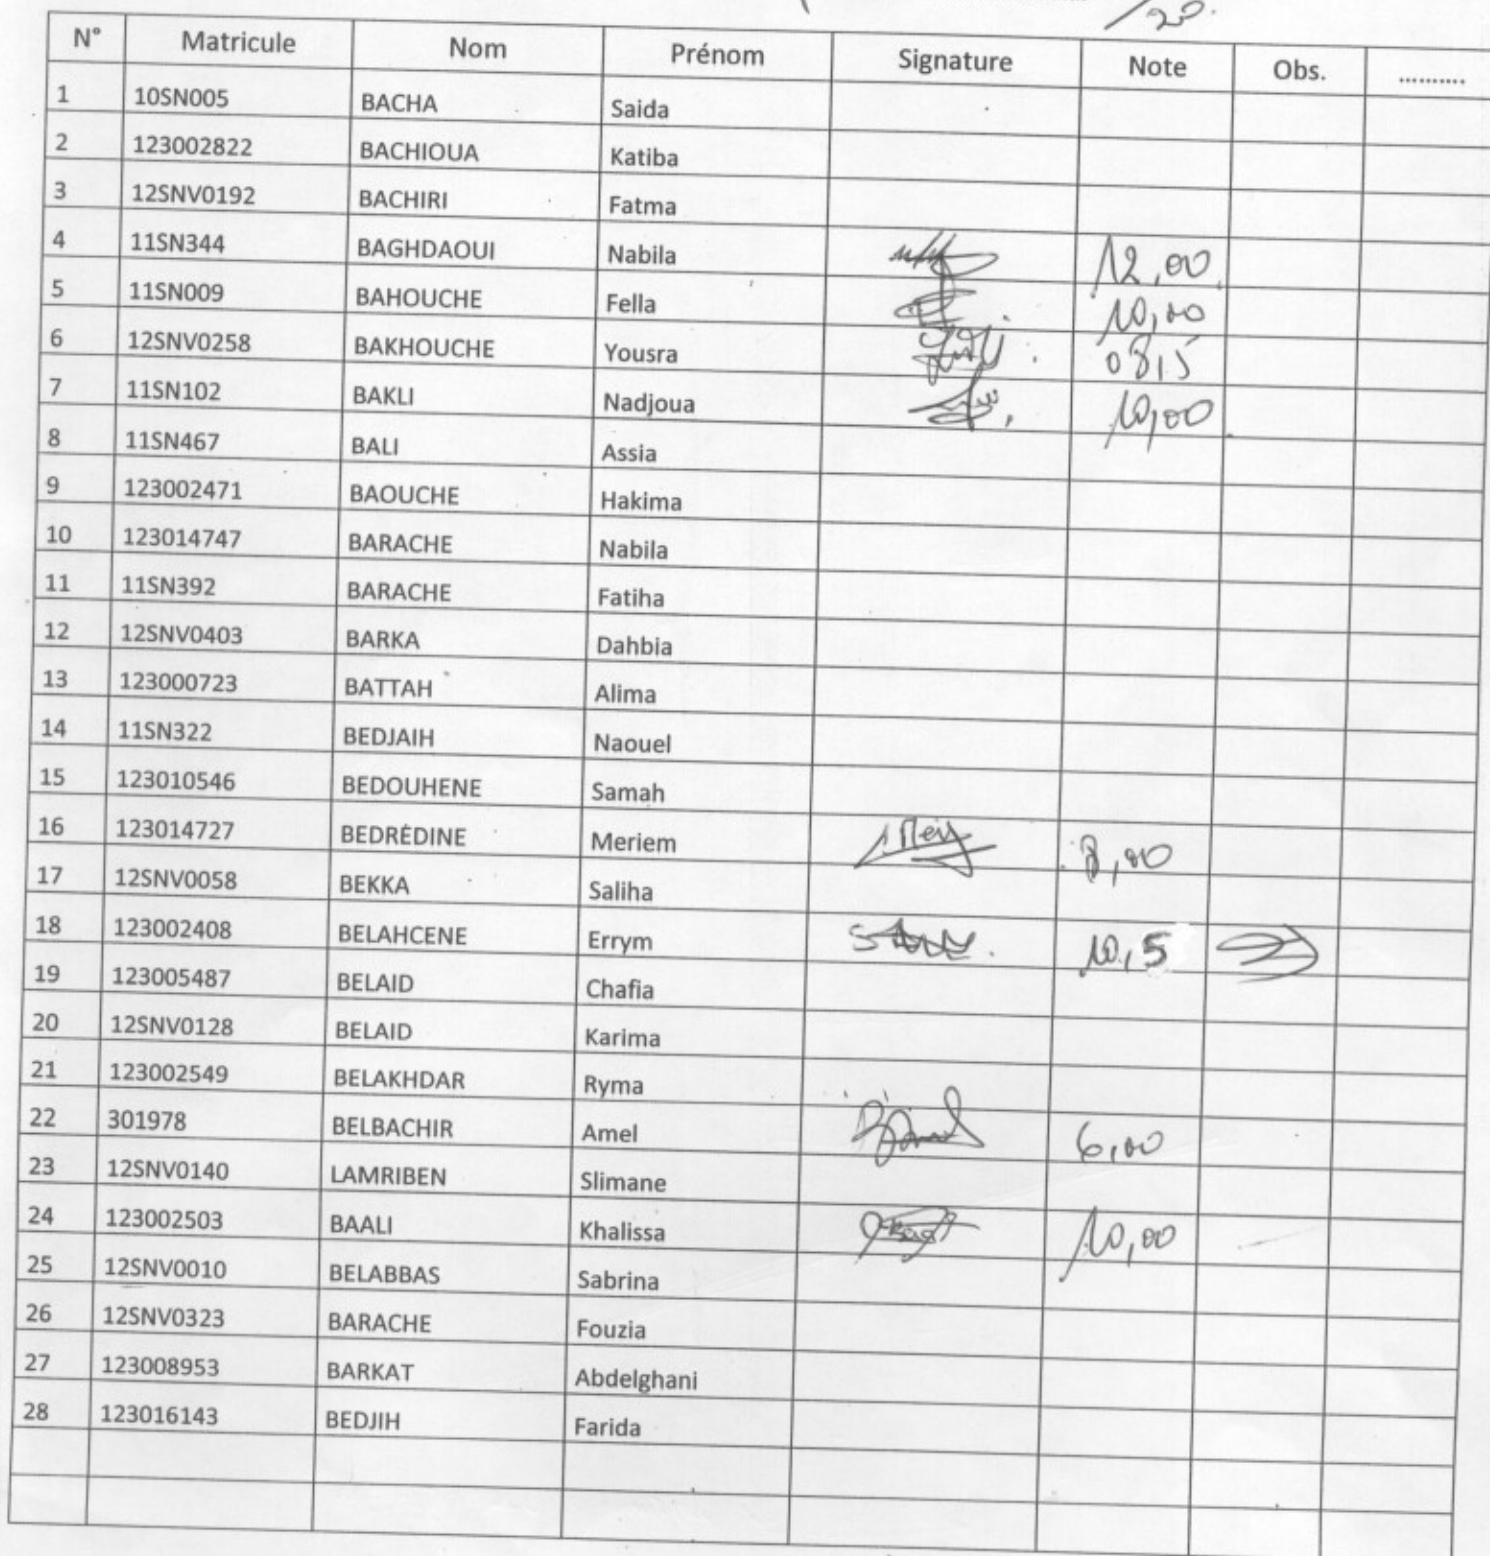 /20.
N° Matricule Nom Prénom Signature Note Obs. ..........
1 10SN005 BACHA Saida
2 123002822 BACHIOUA Katiba
3 12SNV0192 BACHIRI Fatma
4 11SN344 BAGHDAOUI Nabila 12,00
5 11SN009 BAHOUCHE Fella 10,00
6 12SNV0258 BAKHOUCHE Yousra 08,5
7 11SN102 BAKLI Nadjoua 10,00
8 11SN467 BALI Assia
9 123002471 BAOUCHE Hakima
10 123014747 BARACHE Nabila
11 11SN392 BARACHE Fatiha
12 12SNV0403 BARKA Dahbia
13 123000723 BATTAH Alima
14 11SN322 BEDJAIH Naouel
15 123010546 BEDOUHENE Samah
16 123014727 BEDREDINE Meriem 8,00
17 12SNV0058 BEKKA Saliha
18 123002408 BELAHCENE Errym 10,5
19 123005487 BELAID Chafia
20 12SNV0128 BELAID Karima
21 123002549 BELAKHDAR Ryma
22 301978 BELBACHIR Amel 6,00
23 12SNV0140 LAMRIBEN Slimane
24 123002503 BAALI Khalissa 10,00
25 12SNV0010 BELABBAS Sabrina
26 12SNV0323 BARACHE Fouzia
27 123008953 BARKAT Abdelghani
28 123016143 BEDJIH Farida